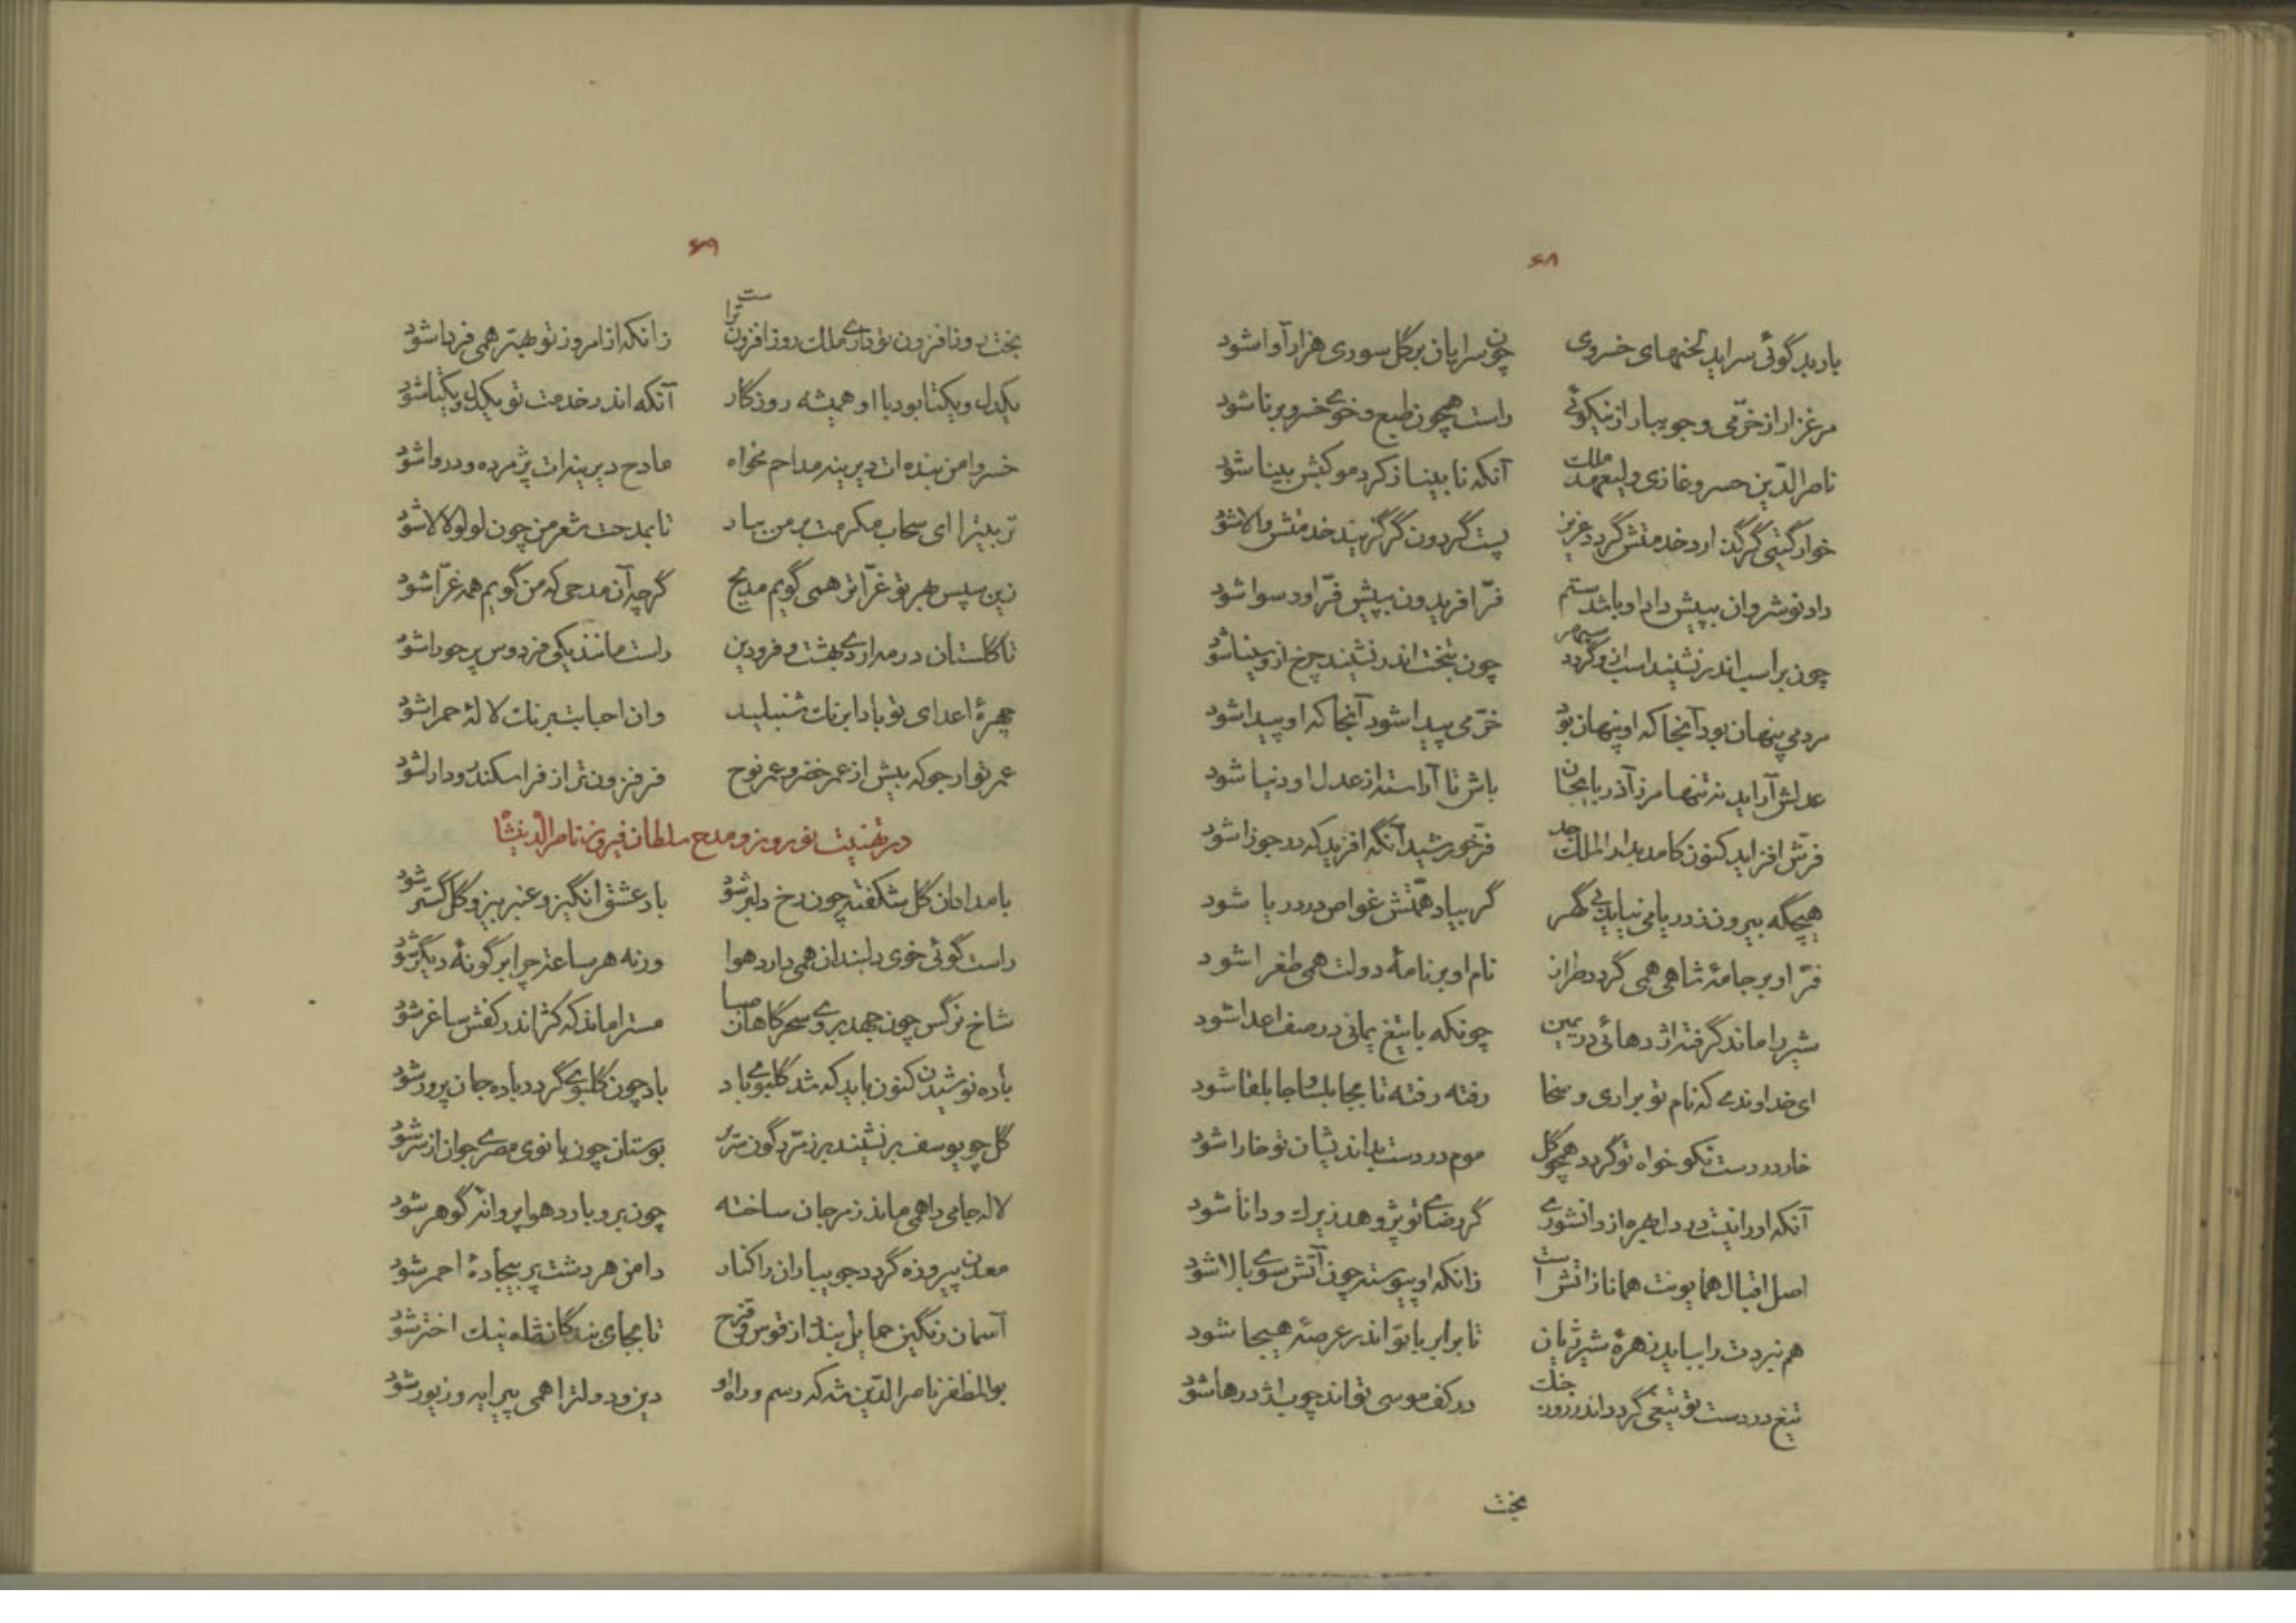 ۶۸
باربد گوئی سراید لحنهای خسروی چون سرایان بر گل سوری هزارآوا شود
مرغزار از خرّمی و جویبار از نیکوئی راست همچون طبع و خوی خسرو برنا شود
ناصرالدّین خسرو غازی ولیعهد ملک آنکه نابینا ز گرد موکبش بینا شود
خوار گیتی گر گذارد خدمتش گردد عزیز پست گردون گر گزیند خدمتش والا شود
داد نوشروان بپیش داد او باشد ستم فرّ افریدون بپیش فرّ او رسوا شود
چون بر اسب اندر نشیند اسب ازو گردد سپهر چون بتخت اندر نشیند چرخ ازو مینا شود
مردمی پنهان بود آنجا که او پنهان بود خرّمی پیدا شود آنجا که او پیدا شود
عدلش آراید نه تنها مرز آذربایجان باش تا آراسته از عدل او دنیا شود
فرّش افزاید کنون کامد بدار الملک جد فرّ خورشید آنگه افزاید که در جوزا شود
هیچگه بیرون ز دریا می نیاید بی گهر گر بیاد همّتش غواص در دریا شود
فرّ او بر جامهٔ شاهی همی گردد طراز نام او بر نامهٔ دولت همی طغرا شود
شیر را ماند گرفته اژدهائی در یمین چونکه با تیغ یمانی در صف اعدا شود
ای خداوندی که نام تو براری و سخا رفته رفته تا بجابلسا و جابلقا شود
خار در دست نکو خواه تو گردد همچو گل موم در دست بداندیشان تو خارا شود
آنکه او را نیست در دل بهره از دانشوری گر رضای تو پژوهد زیرک و دانا شود
اصل اقبال همایونت همانا ز اتش است زانکه او پیوسته چون آتش سوی بالا شود
هم نبردت را بباید زهرهٔ شیر ژیان تا برابر با تو اندر عرصهٔ هیجا شود
تیغ در دست تو تیغی گردد اندر روز جنگ در کف موسی تواند چوب اژدرها شود
بخت
۶۹
بخت روزافزون تو داری ملک روزافزون تراست زانکه از امروز تو بهتر همی فردا شود
یکدل و یکتا بود با او همیشه روزگار آنکه اندر خدمت تو یکدل و یکتا شود
خسروا من بنده‌ات دیرینه مداحم مخواه مادح دیرینه‌ات پژمرده و دروا شود
تربیترا ای سحاب مکرمت بر من ببار تا بمدحت شعر من چون لولو لالا شود
زین سپس بهر تو غرّاتر همی گویم مدیح گرچه آن مدحی که من گویم همه غرّا شود
تا گلستان در مه اردی بهشت و فرودین راست مانند یکی فردوس پر حورا شود
چهرهٔ اعدای تو بادا برنگ شنبلید وان احبابت برنگ لالهٔ حمرا شود
عمر تو ارجو که بیش از عمر خضر و عمر نوح فر فزون‌تر از فر اسکندر و دارا شود
در تهنیت نوروز و مدح سلطان فیروز ناصرالدینشا
بامدادان گل شکفته چون رخ دلبر شود باد عشق انگیز و عنبر بیز و گل گستر شود
راست گوئی خوی دلبندان همی دارد هوا ورنه هر ساعت چرا بر گونهٔ دیگر شود
شاخ نرگس چون جهد بروی سحرگاهان صبا مستر اماند که کژ اندر کفش ساغر شود
باده نوشیدن کنون باید که شد گلبوی باد باد چون گلبوی گردد باده جان پرور شود
گل چو یوسف بر نشیند بر زمرّدگون سریر بوستان چون بانوی مصری جوان از سر شود
لاله جامی را همی ماند ز مرجان ساخته چون برو بارد هوا پروانه گوهر شود
معدن پیروزه گردد جویباران را کنار دامن هر دشت پر بیجادهٔ احمر شود
آسمان رنگین حمایل بندد از قوس و قزح تا بجای بندگان شاه نیک اختر شود
بوالمظفر ناصرالدین شه که رسم و راه او دین و دولترا همی پیرایه و زیور شود